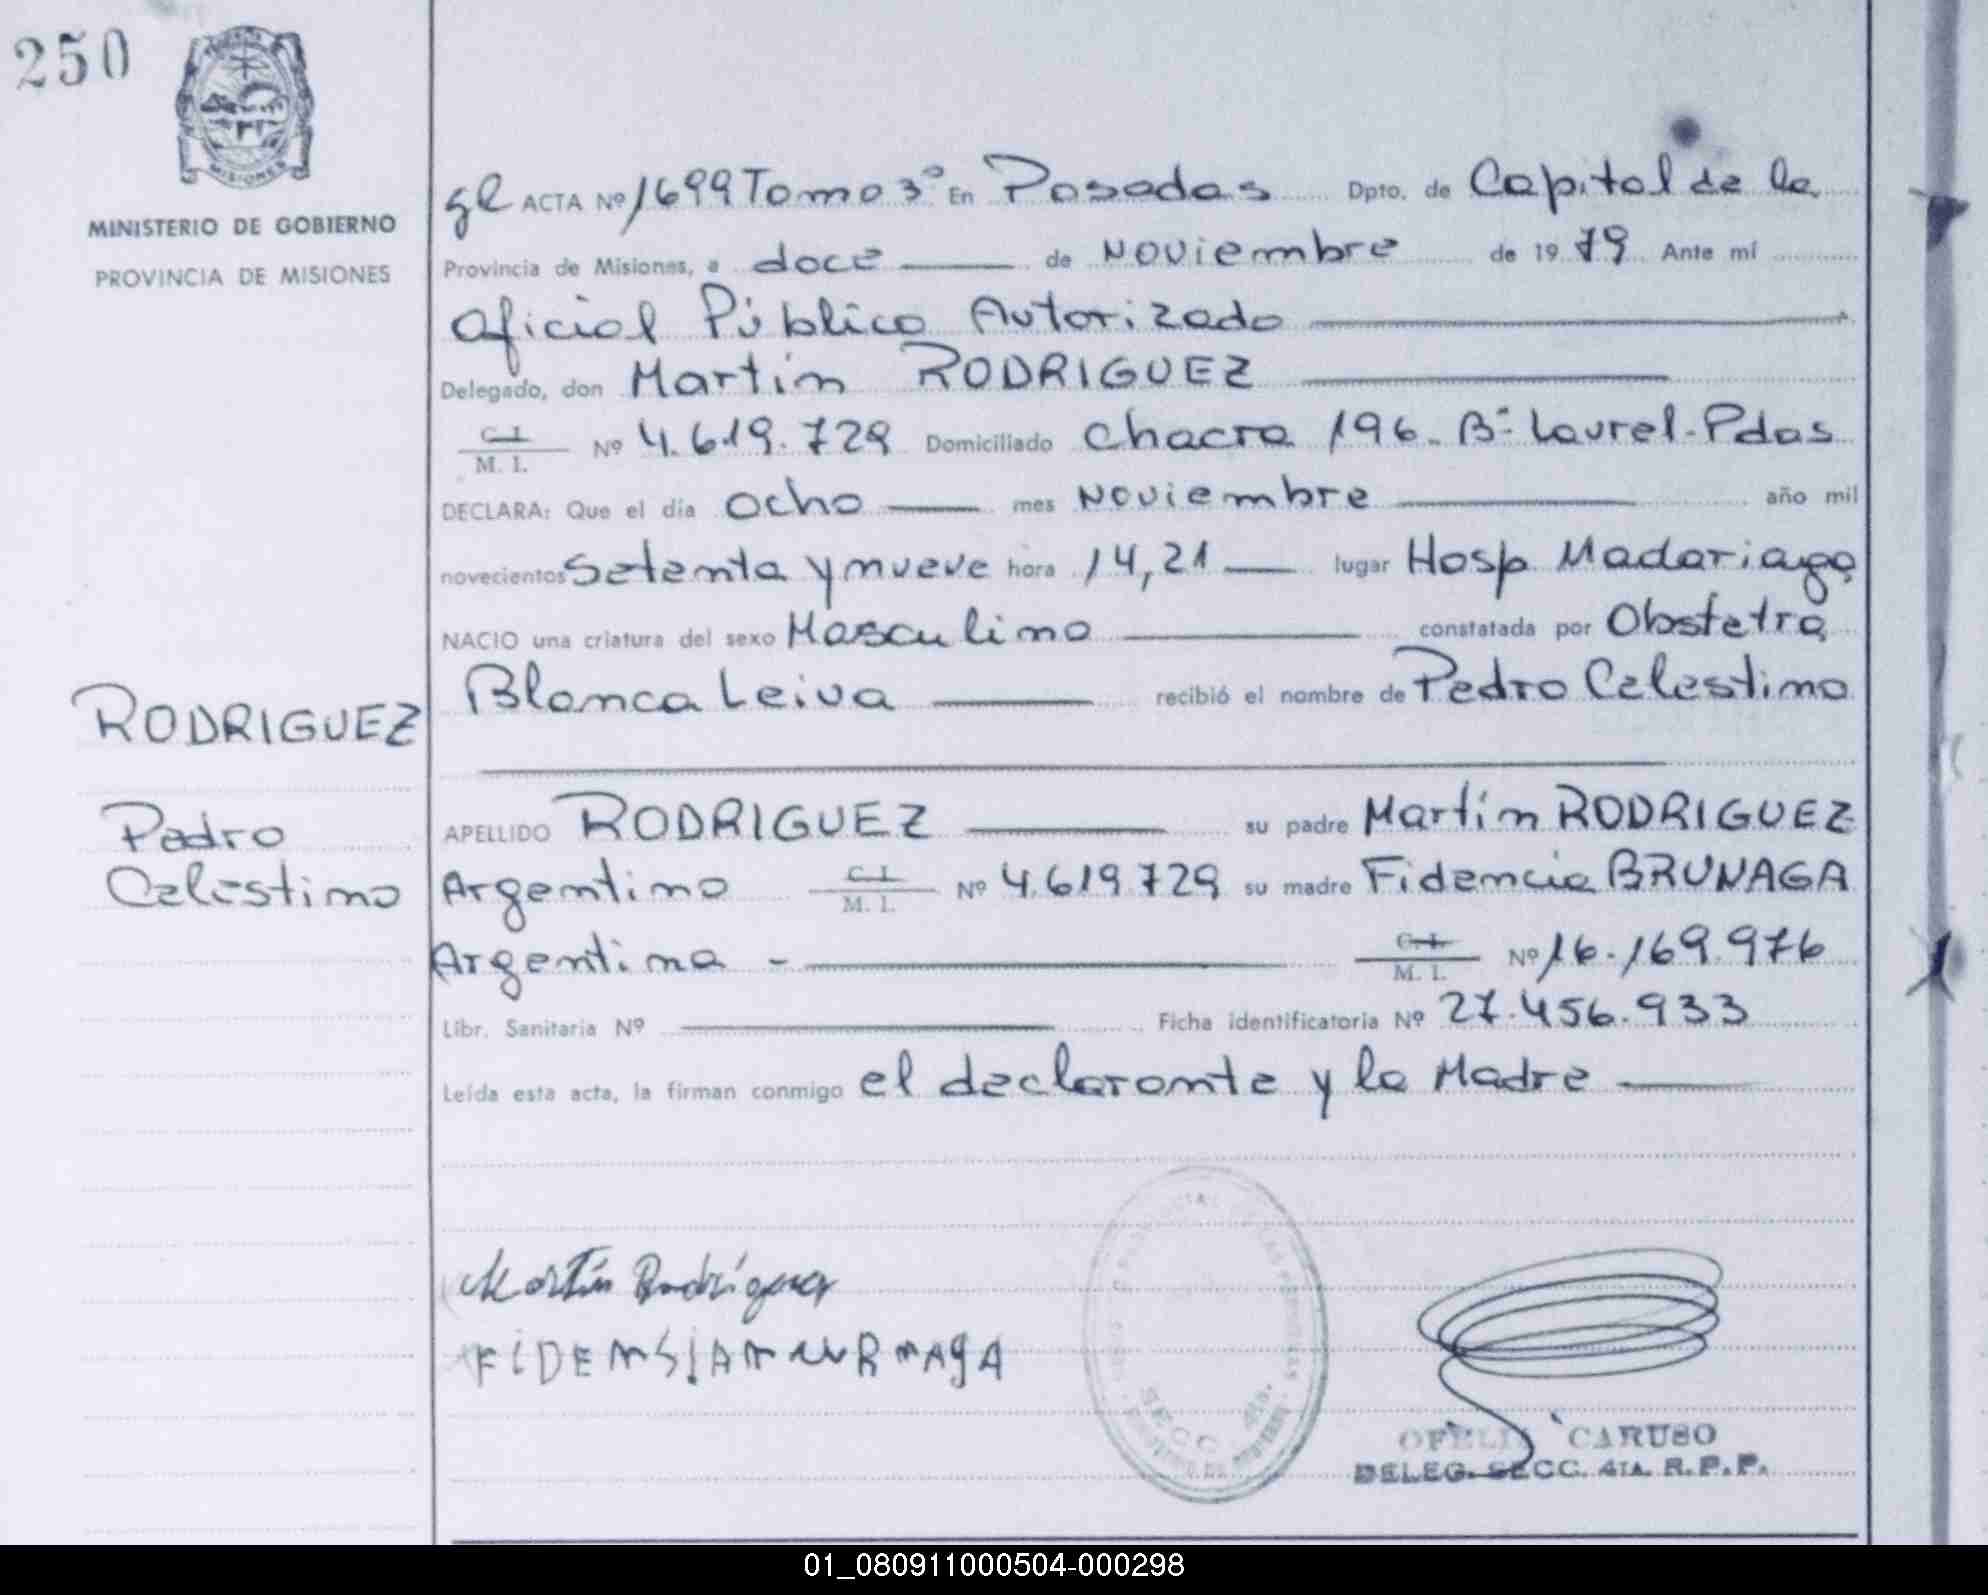 250
MISIONES
MINISTERIO DE GOBIERNO
PROVINCIA DE MISIONES
RODRIGUEZ
Pedro
Celestino
gl ACTA Nº 1699 Tomo 3º En Posadas Dpto. de Capital de la
Provincia de Misiones, a doce de Noviembre de 19 79 Ante mí
Oficial Público Autorizado
Delegado, don Martín RODRIGUEZ
C. I.
M. I. Nº 4.619.729 Domiciliado Chacra 196. Bº Laurel-Pdas
DECLARA: Que el día Ocho mes Noviembre año mil
novecientos Setenta y nueve hora 14,21 lugar Hosp Madariaga
NACIO una criatura del sexo Masculino constatada por Obstetra
Blanca Leiva recibió el nombre de Pedro Celestino
APELLIDO RODRIGUEZ su padre Martín RODRIGUEZ
Argentino C. I.
M. I. Nº 4.619.729 su madre Fidencia BRUNAGA
Argentina - C. I.
M. I. Nº 16.169.976
Libr. Sanitaria Nº Ficha identificatoria Nº 27.456.933
Leída esta acta, la firman conmigo el declarante y la Madre
Martín Rodríguez
SECC 4ta.
OFELIA CARUSO
DELEG. SECC. 4TA. R.P.P.
01_080911000504-000298